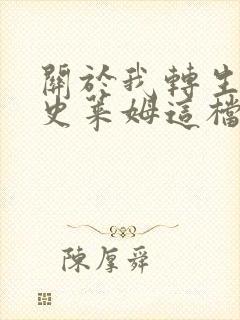 關於我轉生
史萊姆這檔
陳厚舜